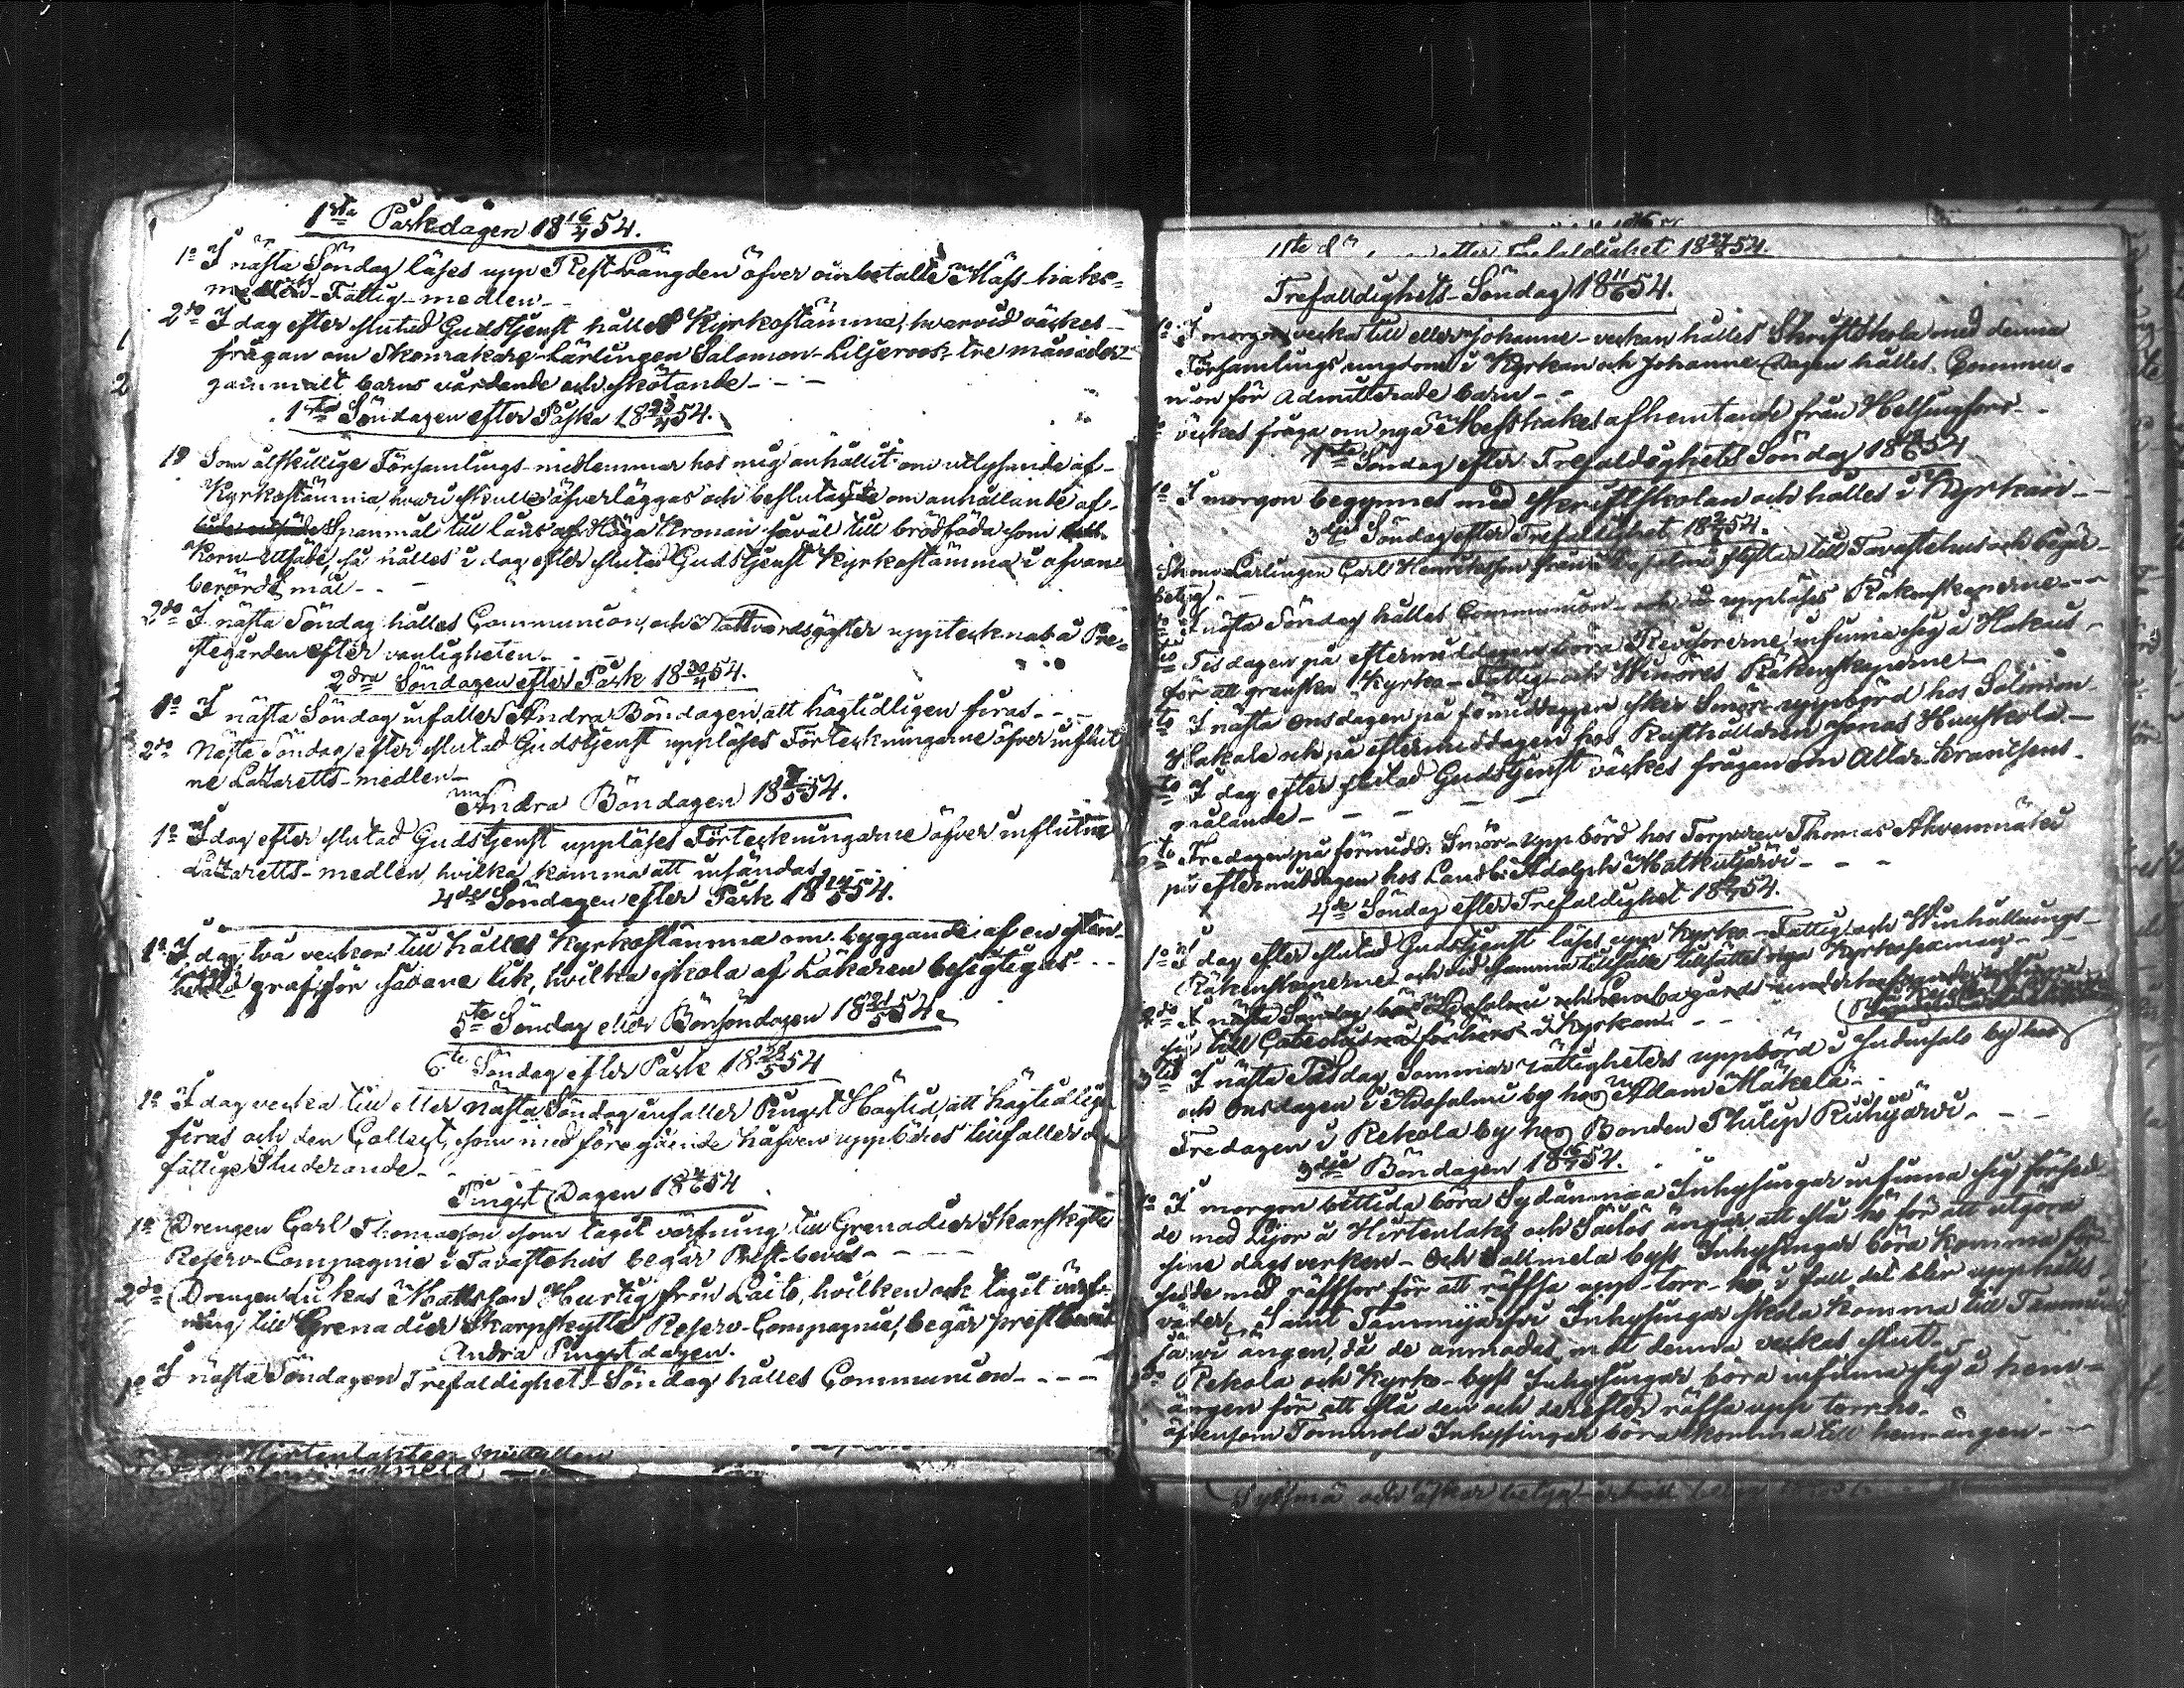 1sta Påskdagen 18 16/4 54.
1o I nästa Söndag läses upp Rest-Längden öfver oinbetalte Mäss-hake-
Fattig-medlen-
2do I dag efter slutad Gudstjenst hålles Kyrkostämma, hvarvid väckes
frågan om Skomakare-Lärlingen Salomon Liljeroos tre månader
gammalt barns vårdande och skötande - - -
1sta Söndagen efter Påska 18 23/4 54.
1o Som åtskillige Församlings-medlemmar hos mig anhållit om utlysande af
Kyrkostämma, hvari skulle öfverläggas och beslutas om anhållande af
Spanmål till låns af Höga Kronan såväl till brödföda som
Korn-Utsäde, så hålles i dag efter slutad Gudstjenst Kyrkostämma i ofvan-
berörde mål - -
2do I nästa Söndag hålles Communion, och Nattvardsgäster upptecknas å Pre-
stegården efter vanligheten - -
2dra Söndagen efter Påsk 18 30/4 54.
1o I nästa Söndag infaller Andra Böndagen, att högtidligen firas - - -
2do Näste Söndag efter slutad Gudstjenst uppläses Förteckningarne öfver influt-
ne Lazaretts-medlen -
Andra Böndagen 18 7/5 54.
1o I dag efter slutad Gudstjenst uppläses Förteckningarne öfver influtne
Lazaretts-medlen, hvilka komma att insändas.
4de Söndagen efter Påsk 18 14/5 54.
1o I dag två veckor till hålles Kyrkostämma om byggande af en sten-
graf för sådane lik, hvilka skola af Läkaren besigtigas - - -
5te Söndag eller Bönsöndagen 18 21/5 54.
6te Söndag efter Påsk 18 28/5 54
1o I dag vecka till eller nästa Söndag infaller Pingst Högtid, att högtidligen
firas och den Collect, som med före gående håfven uppbäres tillfaller de
fattige Studerande - -
Pingst Dagen 18 4/6 54
1o Drengen Carl Thomasson som tagit värfning till Grenadier Skarpskytte
Reserv-Compagnie i Tavastehus begär Prest-bevis - - - -
2do Drengen Lukas Mattsson Hurtig från Laito, hvilken ock tagit värf-
ning till Grenadier Skarpskytte Reserv-Compagnie, begär prestbevis
Andra Pingstdagen.
1o I nästa Söndagen Trefaldighets-Söndag hålles Communion - - - -
Hirtenlahteen
11te efter Trefaldighet 18 27/8 54.
Trefaldighets-Söndag 18 11/6 54.
1o I morgon vecka till eller Johanne-veckan hålles Skriftskola med denna
Församlings ungdom i Kyrkan och Johanne Dagen hålles Commu-
nion för admitterade barn - -
väckes fråga om nya Messhakes afhemtande från Helsingfors - -
1sta Söndag efter Trefaldighets Söndag 18 18/6 54
1o I morgon begynnes med Skriftskolan och hålles i Kyrkan - -
3dje Söndag efter Trefaldighet 18 2/7 54.
Lärlingen Carl Henriksson från flyttar till Tavastehus och begär
betyg - -
I nästa Söndag hålles Communion och då uppläses Räkenskaperne - - -
Tisdagen på eftermiddagen böra Revisorerne infinna sig å
för att granska Kyrko- Fattig- och Räkenskaperne -
I nästa onsdagen på förmiddagen sker Smör-uppbörd hos Salomon
Hakala och på eftermiddagen hos Rusthållaren Jonas -
I dag efter slutad Gudstjenst väckes frågan om Altar-Krantsens
målande - - - -
Fredagen på förmidd. Smör-uppbörd hos Torparen Thomas Ahvenniätei
på eftermiddagen hos Landb. Adolph Matkutjärvi - - -
4de Söndag efter Trefaldighet 18 9/7 54.
1o I dag efter slutad Gudstjenst läses upp Kyrko- Fattig och Winhållnings-
Räkenskaperne och vid samma tillfälle tillsättes nya Kyrkosexman - - -
2do I nästa Söndag
sig till Catechismi förhör i Kyrkan. - -
3tio I nästa Tisdag Sommar rättigheters uppbörd i by hos
och Onsdagen i by hos Adam Mäkelä - -
Fredagen i Rekola by hos Bonden Philip Ruhijärvi - - -
3dje Böndagen 18 16/7 54.
1o I morgon bittida böra Sydänmaa Inhysingar infinna sig försed-
de med Lior å Hirtenlaks och ängar att slå hö för att utgöra
sine dagsverken - Och Vallmela byss Inhysingar böra komma för-
sedde med räffsor för att räffsa upp torr-hö, i fall det blir uppehålls
väder, Samt Tammijärfvi Inhysingar skola komma till Tammi-
järvi ängen, då de anmodas, mot denna veckas slut -
2do Rekola och Kyrko-byss Inhysingar böra infinna sig å hem-
ängen för att slå den och derefter räffsa upp torr-hö.
äfvensom Tommola Inhysingar böra komma till hem-ängen - -